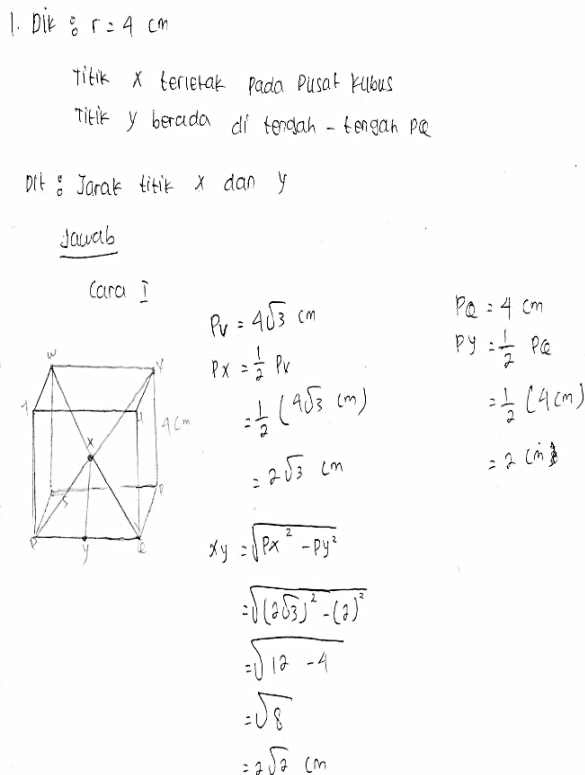 1. Dik : r = 4 cm
Titik x terletak pada pusat kubus
Titik y berada di tengah - tengah PQ
Dit : Jarak titik x dan y
Jawab
Cara I
W
V
T
U
4 cm
X
S
R
P
y
Q
Pv = 4√3 cm
Px = 1/2 Pv
= 1/2 (4√3 cm)
= 2√3 cm
PQ = 4 cm
PY = 1/2 PQ
= 1/2 (4 cm)
= 2 cm
xy = √Px² - Py²
= √(2√3)² - (2)²
= √12 - 4
= √8
= 2√2 cm